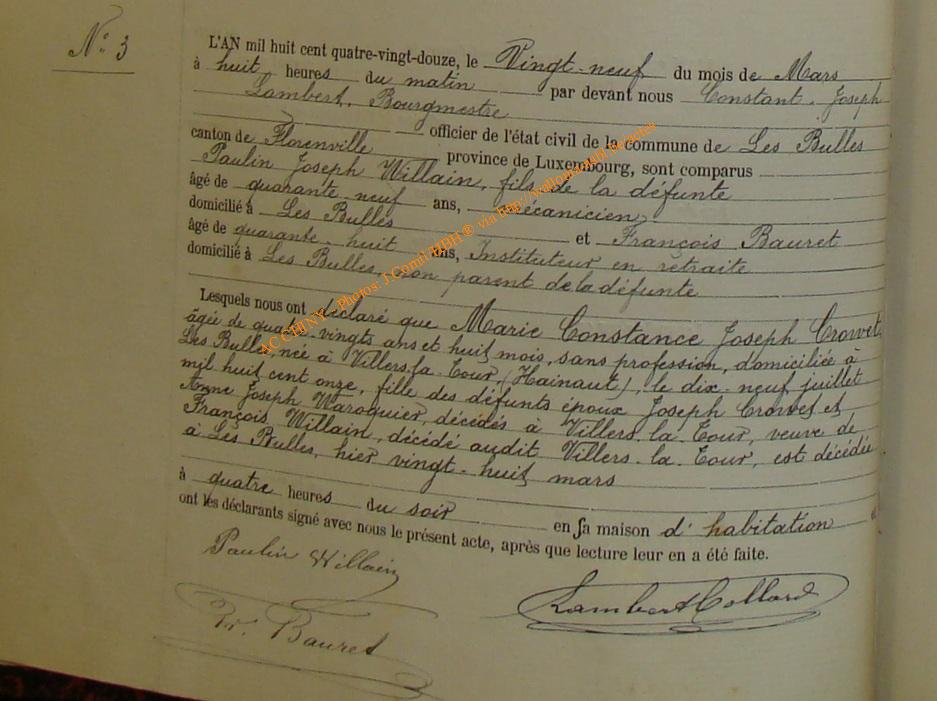 N° 3
L'AN mil huit cent quatre-vingt-douze, le Vingt-neuf du mois de Mars
à huit heures du matin par devant nous Constant-Joseph
Lambert, Bourgmestre
officier de l'état civil de la commune de Les Bulles
canton de Florenville province de Luxembourg, sont comparus
Paulin Joseph Willain, fils de la défunte
âgé de quarante-neuf ans, mécanicien
domicilié à Les Bulles et François Bauret
âgé de quarante-huit ans, Instituteur en retraite
domicilié à Les Bulles, non parent de la défunte
Lesquels nous ont déclaré que Marie Constance Joseph Crowet
âgée de quatre-vingts ans et huit mois, sans profession, domiciliée à
Les Bulles, née à Villers-la-Tour, (Hainaut), le dix-neuf juillet
mil huit cent onze, fille des défunts époux Joseph Crowet et
Anne Joseph Waroquier, décédés à Villers-la-Tour, veuve de
François Willain, décédé audit Villers-la-Tour, est décédée
à Les Bulles, hier vingt-huit mars
à quatre heures du soir en sa maison d'habitation et
ont les déclarants signé avec nous le présent acte, après que lecture leur en a été faite.
Paulin Willain
Lambert Collard
Fr. Bauret
ACCHINY - Photos: J.Comil MBH ® via http://wallonia